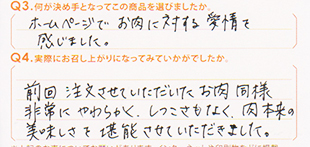 Q3.何が決め手となってこの商品を選びましたか。
ホームページでお肉に対する愛情を
感じました。
Q4.実際にお召し上がりになってみていかがでしたか。
前回注文させていただいたお肉同様
非常にやわらかく、しつこさもなく、肉本来の
美味しさを堪能させていただきました。